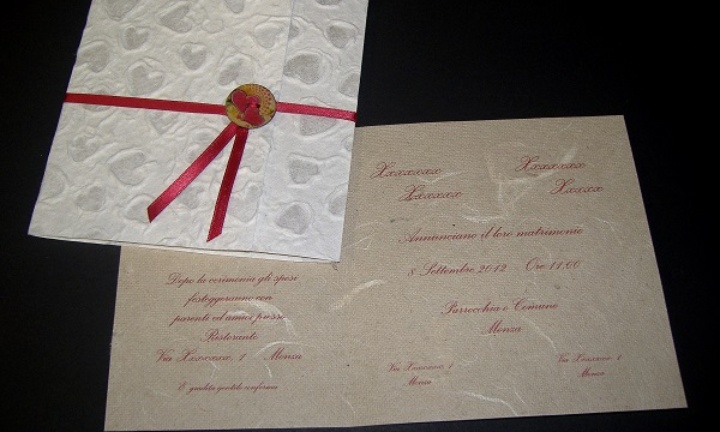 Dopo la cerimonia gli sposi
festeggeranno con
parenti ed amici presso
Ristorante
Via Xxxxxxx, 1 Monza
È gradita gentile conferma
Xxxxxxx Xxxxxxx
Xxxxxx Xxxxxx
Annunciano il loro matrimonio
8 Settembre 2012 Ore 11,00
Parrocchia e Comune
Monza
Via Xxxxxxx, 1 Via Xxxxxxx, 1
Monza Monza